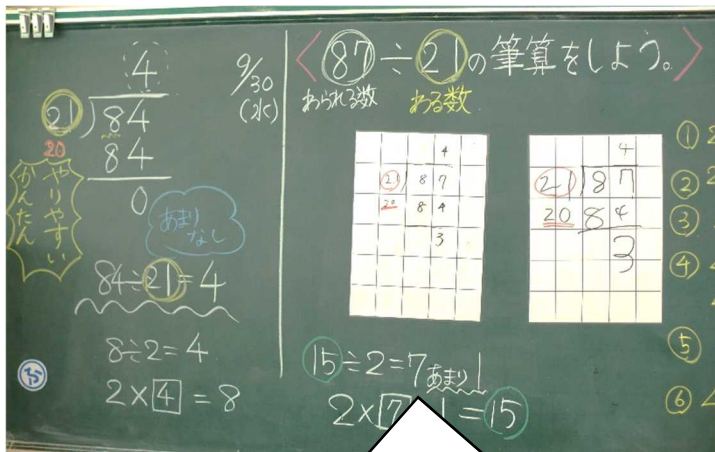 4
21)84
20
84
0
やりやすい
かんたん
あまり
なし
84÷21=4
8÷2=4
2×4=8
9/30
(水)
〈87÷21の筆算をしよう。〉
わられる数
わる数
4
21)87
20 84
3
4
21)87
20 84
3
15÷2=7あまり1
2×7 1=15
①2
②2
③
④
⑤
⑥